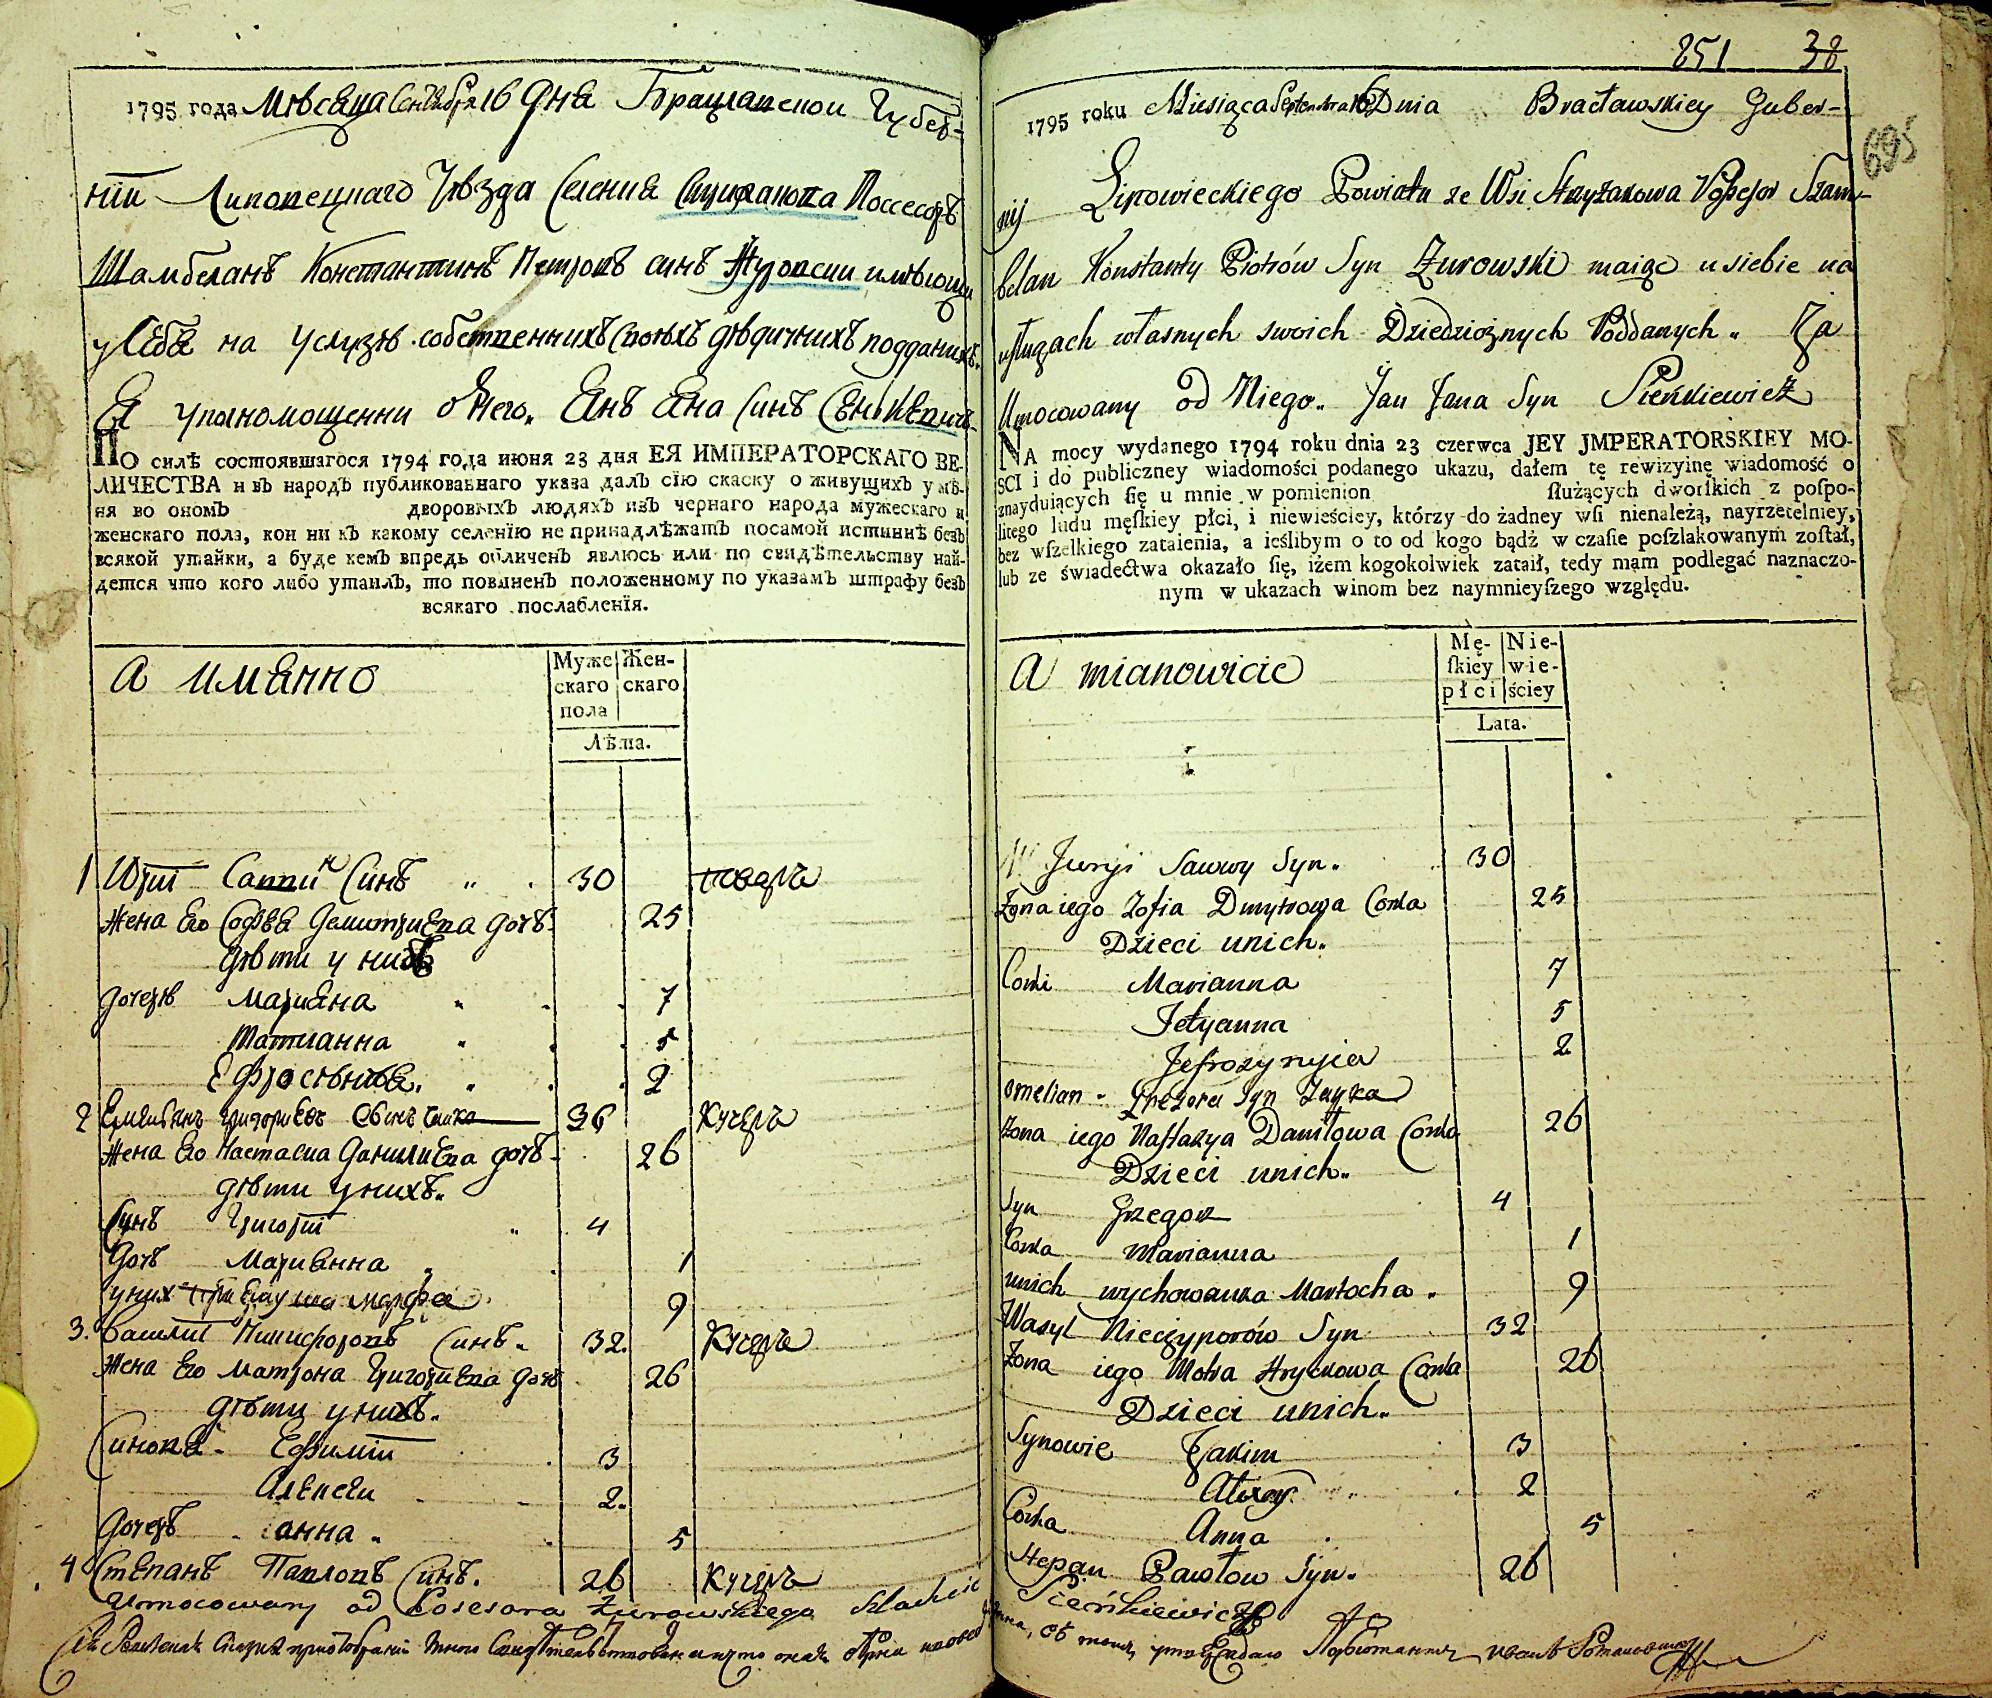 1795 года Мѣсяца Сентября 16 Дня Брацлавской Губер-
нїи Липовецкаго Уѣзда Селения Стрижакова Поссесоръ
Шамбеланъ Константинъ Петровъ синъ Журовски имѣющи
у себя на услузѣ собственнихъ своихъ дѣдичнихъ подданихъ.
Я уполномощенни от него. Янъ Яна Синъ Сѣнкевичъ.
ПО силѣ состоявшагося 1794 года июня 23 дня ЕЯ ИМПЕРАТОРСКАГО ВЕ-
ЛИЧЕСТВА и въ народъ публикованнаго указа далъ сїю скаску о живущихъ у мѣ-
ня во ономъ дворовыхъ людяхъ изъ чернаго народа мужескаго и
женскаго пола, кои ни къ какому селенїю не принадлѣжатъ посамой истиннѣ безъ
всякой утайки, а буде кемъ впредь обличенъ явлюсь или по свидѣтельству най-
дется что кого либо утаилъ, то повиненъ положенному по указамъ штрафу безъ
всякаго послабленїя.
а имянно
Муже
скаго
пола
Жен-
скаго
Лѣта.
1 Юрїй Саввин Синъ 30 поваръ
жена Его Софья Демитриева дочь 25
дѣти у нихъ
дочерѣ Марияна 7
Татианна 5
Ефросѣния. 2
2 Емелиянъ Григориевъ Сынъ 36 Кучеръ
жена Его Настасиа Данилиева дочь 26
дѣти у нихъ.
Синъ Григорїй 4
дочъ Марианна 1
у них Марфа 9
3. Василїй Ничифоровъ Синъ. 32. Кучеръ
Жена Его Матрона Григориева дочъ 26
дѣти у нихъ.
Синовя Ефимїй 3
Алексѣи 2.
дочеръ анна. 5
4 Степанъ Павловъ Синъ. 26 Кучеръ
Umocowany od Posesora Żurowskiego Szlachcic
851 38
695
1795 roku Miesiąca Septembra 16 Dnia Bracławskiey Guber-
nij Lipowieckiego Powiatu ze Wsi Stryżakowa Possesor Szam-
belan Konstanty Piotrów Syn Żurowski maiąc u siebie na
usługach własnych swoich Dziedzicznych Poddanych. Ja
Umocowany od Niego. Jan Jana Syn Sieńkiewicz
NA mocy wydanego 1794 roku dnia 23 czerwca JEY JMPERATORSKIEY MO-
SCI i do publiczney wiadomości podanego ukazu, dałem tę rewizyinę wiadomość o
znayduiących ſię u mnie w pomienion ſłużących dworſkich z poſpo-
litego ludu męſkiey płci, i niewieściey, którzy do żadney wſi nienależą, nayrzetelniey,
bez wſzelkiego zataienia, a ieślibym o to od kogo bądź w czaſie poſzlakowanym zoſtał,
lub ze świadectwa okazało ſię, iżem kogokolwiek zataił, tedy mam podlegać naznaczo-
nym w ukazach winom bez naymnieyſzego względu.
a mianowicie
Mę-
ſkiey
płci
Nie-
wie-
ściey
Lata.
Juryi Sawwy Syn. 30
Żona iego Zofia Dmytrowa Corka 25
Dzieci unich.
Corki Marianna 7
Jetyanna 5
Jefrozynyia 2
omelian Grzegorza Syn Zayka
Żona iego Nastazya Daniłowa Corka 26
Dzieci unich.
Syn Grzegorz 4
Corka Marianna 1
unich wychowanka Martocha. 9
Wasyl Nieczyporów Syn 32
Żona iego Motra Hryckowa Corka 26
Dzieci unich.
Synowie Jakim 3
Alexy 2
Corka Anna 5
Stepan Pawłow Syn. 26
Sieńkiewicz